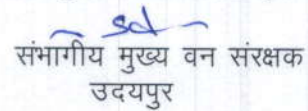 sd
संभागीय मुख्य वन संरक्षक
उदयपुर